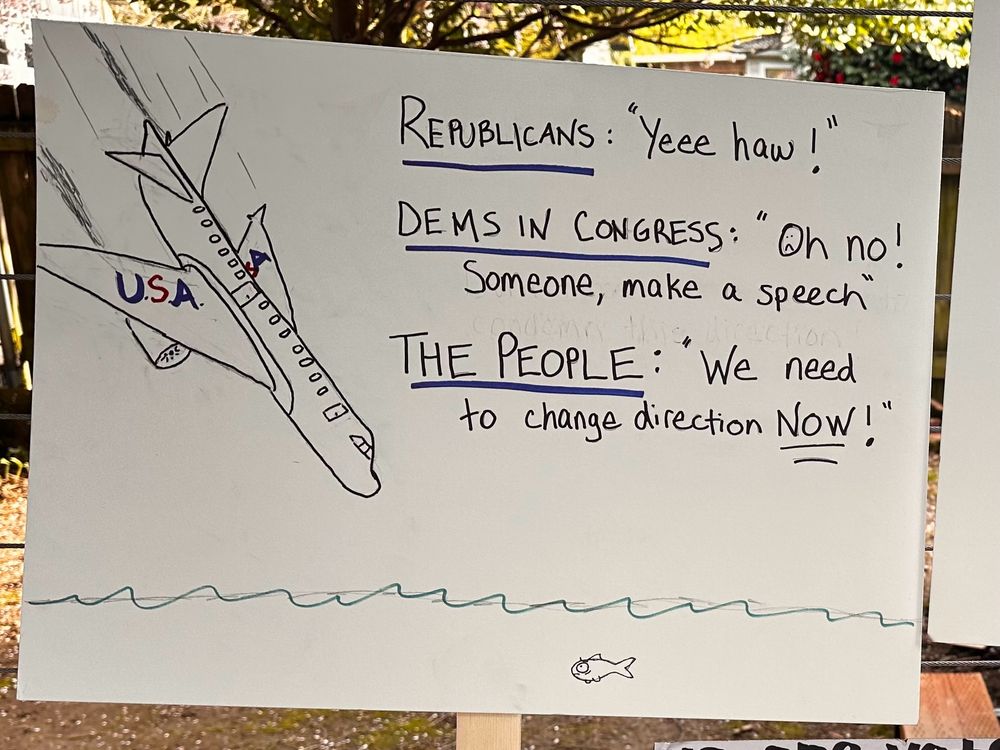 REPUBLICANS: "Yeee haw!"
DEMS IN CONGRESS: "Oh no!
Someone, make a speech"
THE PEOPLE: "We need
to change direction NOW!"
U.S.A.
SA